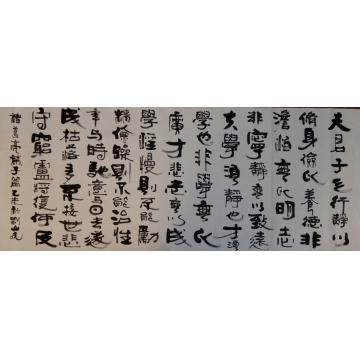 夫君子之行靜以
脩身儉以養德非
澹泊無以明志
非寧靜無以致遠
夫學須靜也才須
學也非學無以
廣才非志無以成
學淫慢則不能勵
精險躁則不能治性
年与時馳意与日去遂
成枯落多不接世悲
守窮廬將復何及
諸葛亮誡子篇乙未秋劉山